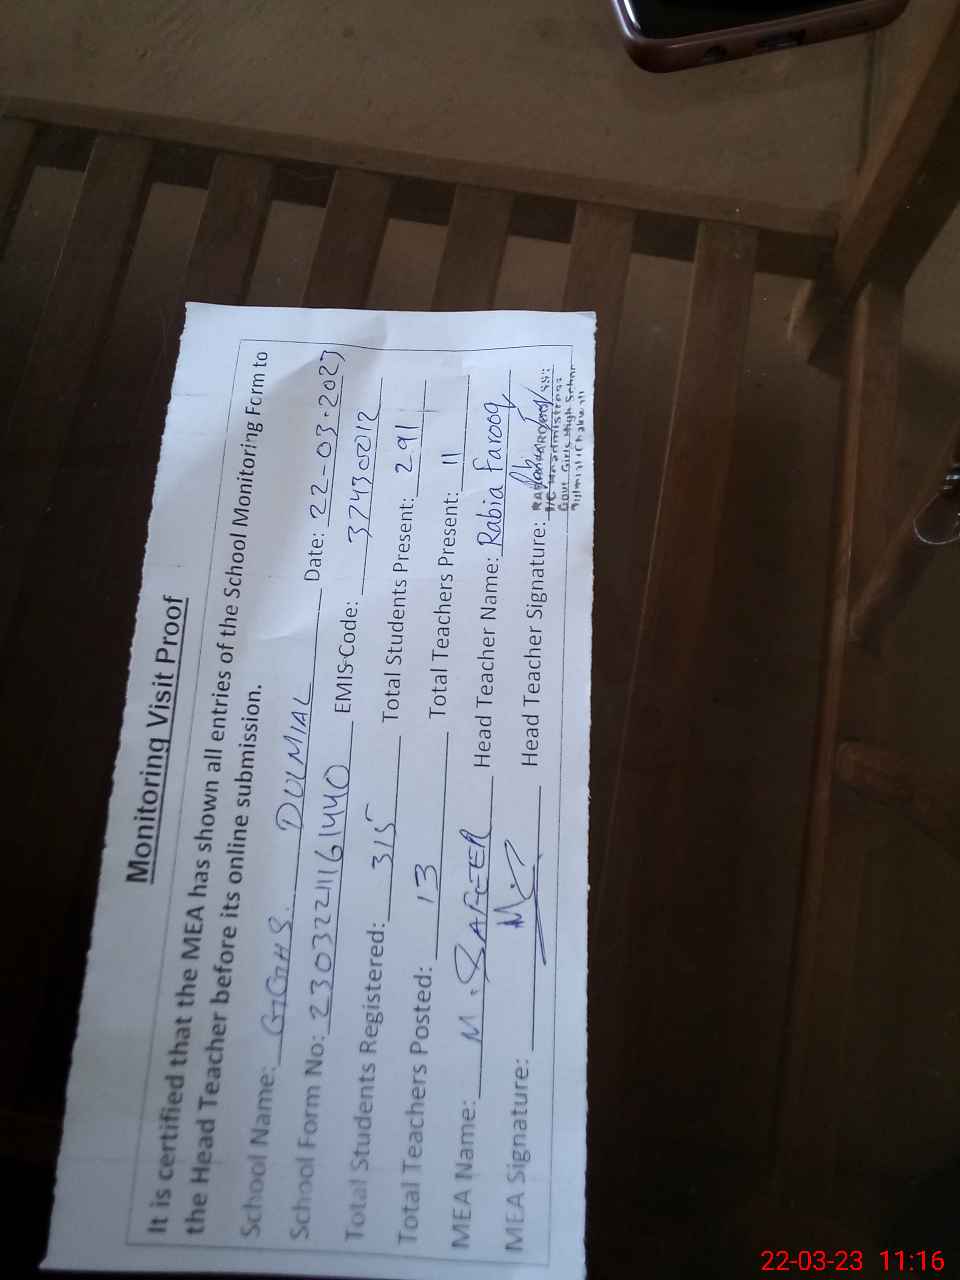 Monitoring Visit Proof
It is certified that the MEA has shown all entries of the School Monitoring Form to
the Head Teacher before its online submission.
School Name: GGHS. DULMIAL Date: 22-03-2023
School Form No: 23032211161440 EMIS Code: 37430212
Total Students Registered: 315 Total Students Present: 291
Total Teachers Posted: 13 Total Teachers Present: 11
MEA Name: M. SAFEER Head Teacher Name: Rabia Farooq
MEA Signature: Head Teacher Signature:
I/C Headmistress
Govt. Girls High School
Dulmial (Chakwal)
22-03-23 11:16